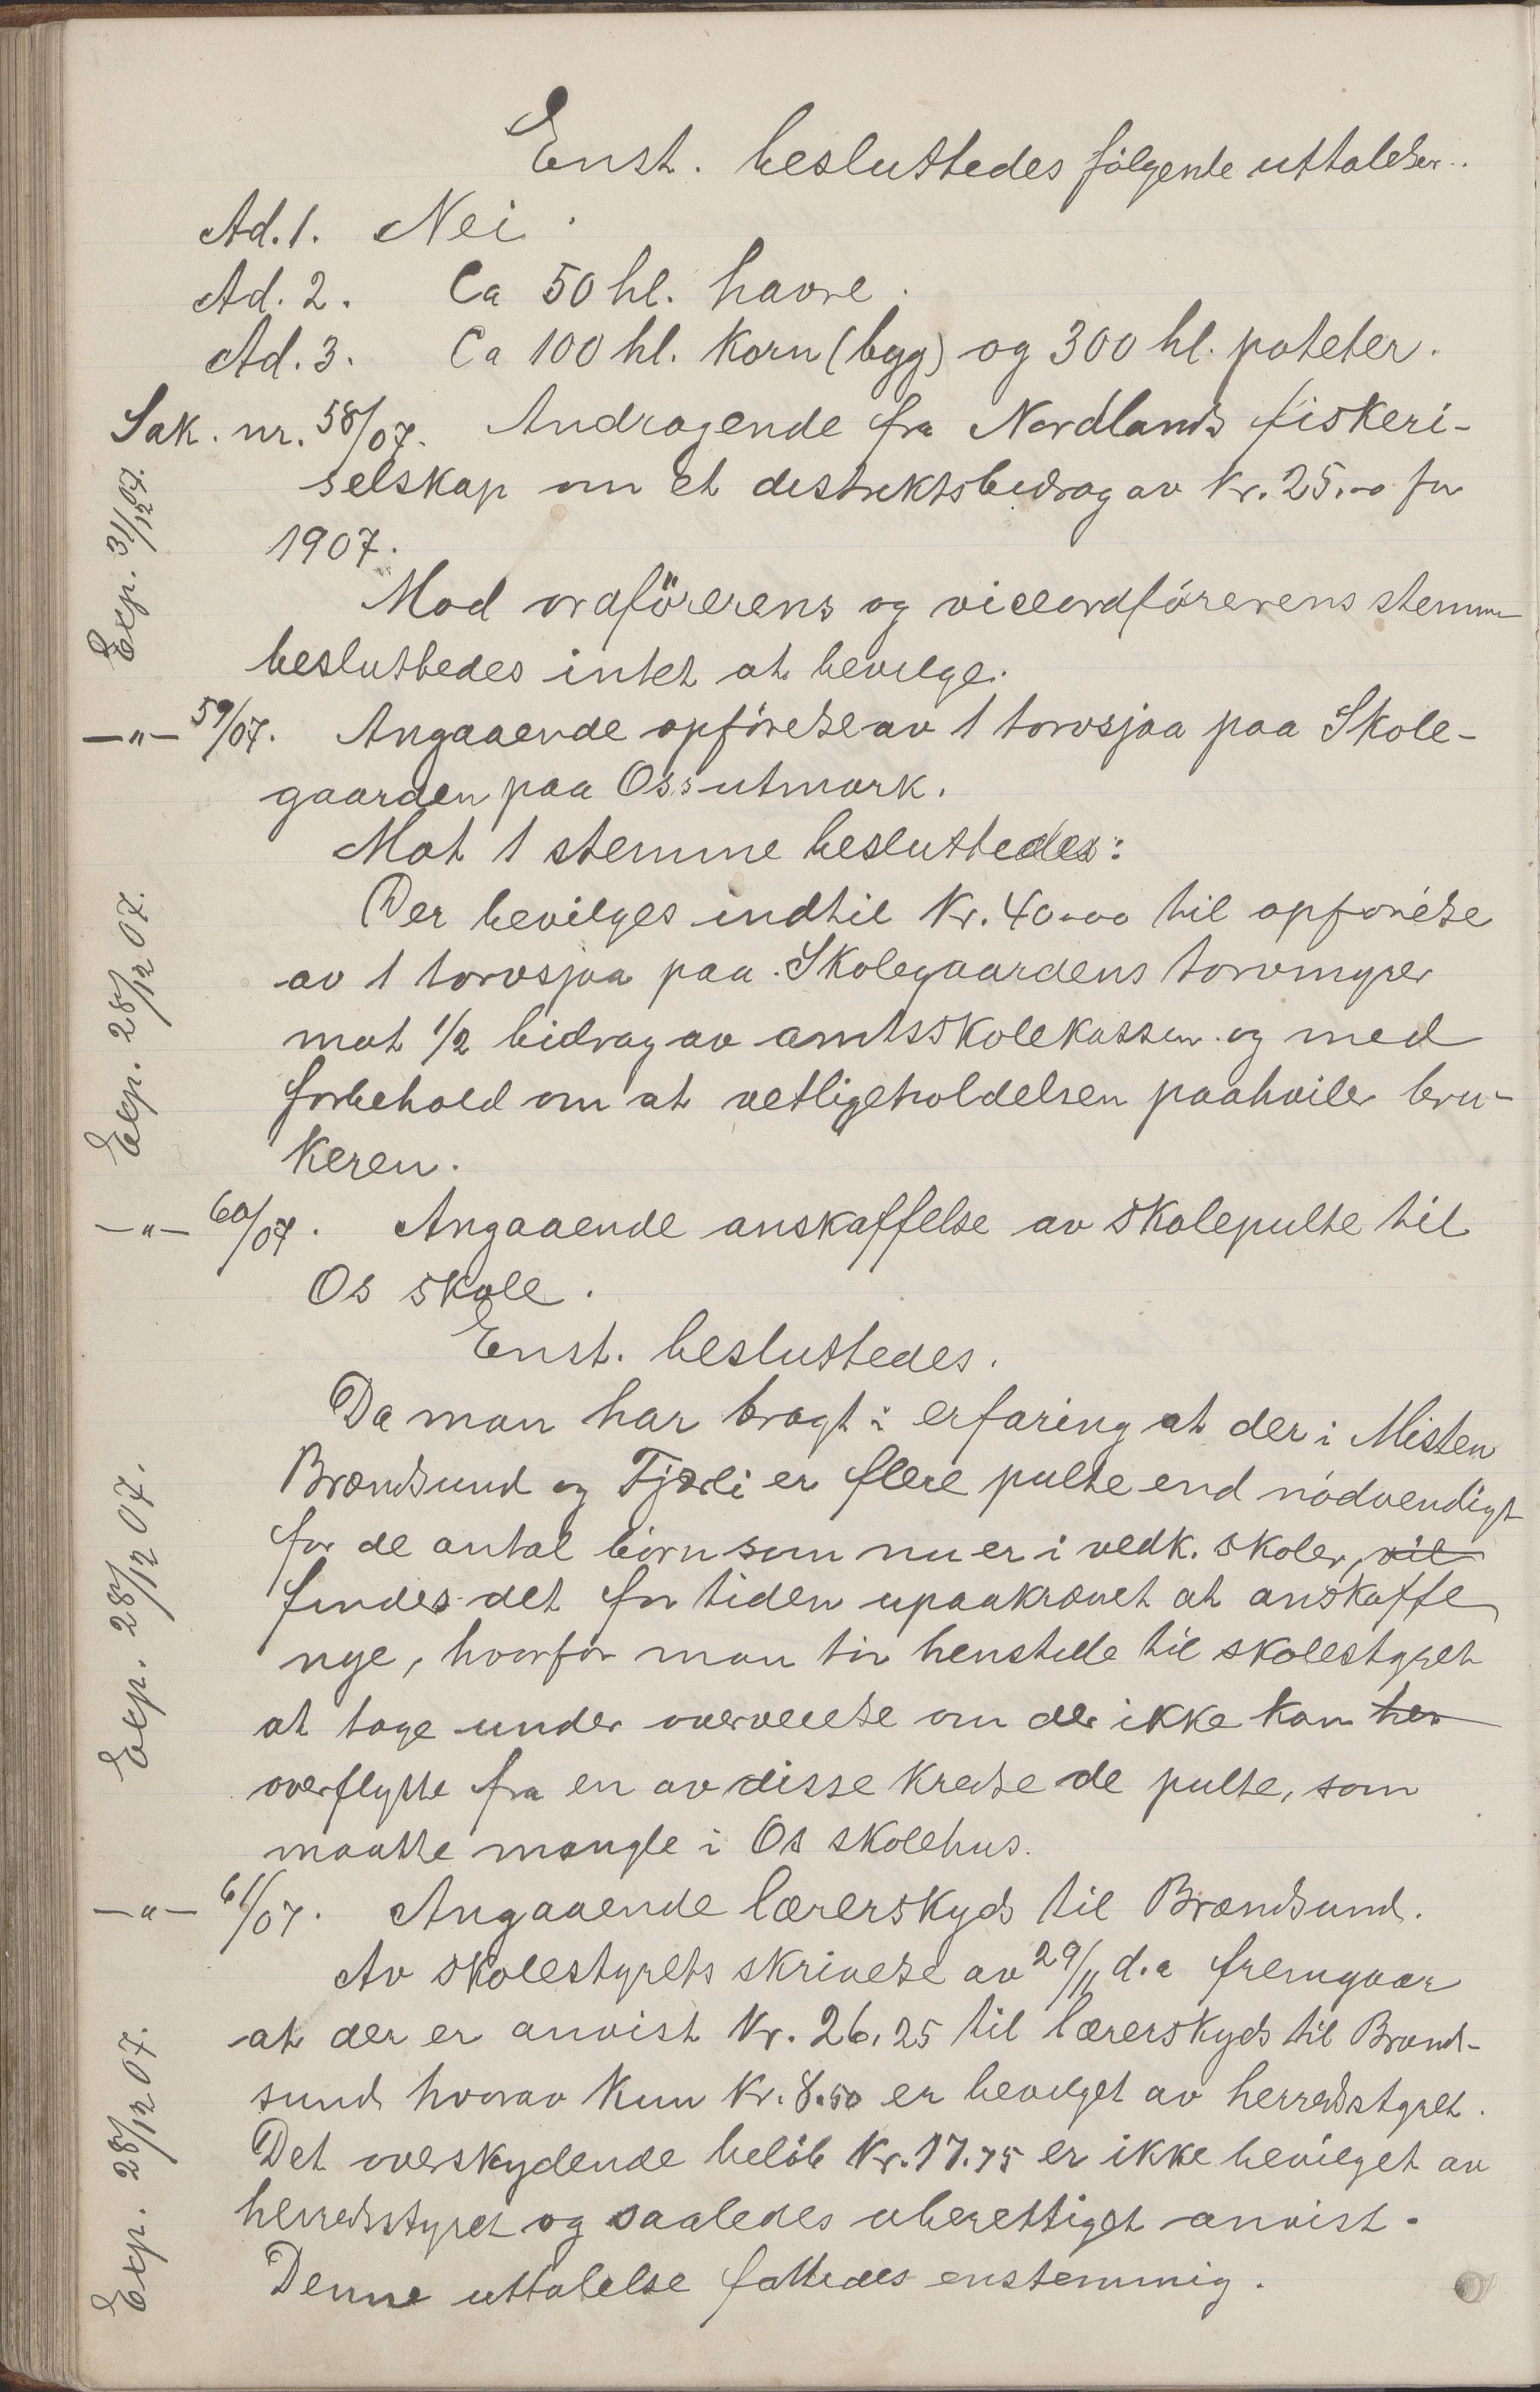 Enst. besluttedes følgende uttalelser.
Ad. 1. Nei.
Ad. 2. Ca 50 hl. havre.
Ad. 3. Ca 100 hl. korn (bygg) og 300 hl. poteter.
Sak. nr. 58/07. Andragende fra Nordlands fiskeri-
selskap om et distriktsbidrag av kr. 25.00 for
1907.
Exp. 31/12 07.
Mod ordförerens og viceordförerens stemme
besluttedes intet at bevilge.
—"— 59/07. Angaaende opförelse av 1 torvsjaa paa Skole-
gaarden paa Os's utmark.
Mot 1 stemme besluttedes:
Der bevilges indtil kr. 40.00 til opförelse
av 1 torvsjaa paa Skolegaardens torvmyrer
mot 1/2 bidrag av amtsskolekassen og med
forbehold om at vetligeholdelsen paahviler bru-
keren.
Exp. 28/12 07.
—"— 60/07. Angaaende anskaffelse av skolepulte til
Os skole.
Enst. besluttedes.
Da man har bragt i erfaring at der i Misten
Brændsund og Fjærli er flere pulte end nödvendigt
for de antal börn som nu er i vedk. skoler, vil
findes det for tiden upaakrævet at anskaffe
nye, hvorfor man tör henstille til skolestyret
at tage under overveielse om der ikke kan her
overflytte fra en av disse kredse de pulte, som
maatte mangle i Os skolehus.
Exp. 28/12 07.
—"— 61/07. Angaaende lærerskyds til Brændsund.
Av skolestyrets skrivelse av 29/11 d.a fremgaar
at der er anvist kr. 26,25 til lærerskyds til Brænd-
sund hvorav kun kr. 8.50 er bevilget av herredsstyret.
Det overskydende belöb kr. 17.75 er ikke bevilget av
herredsstyret og saaledes uberettiget anvist.
Denne uttalelse fattedes enstemmig.
Exp. 28/12 07.